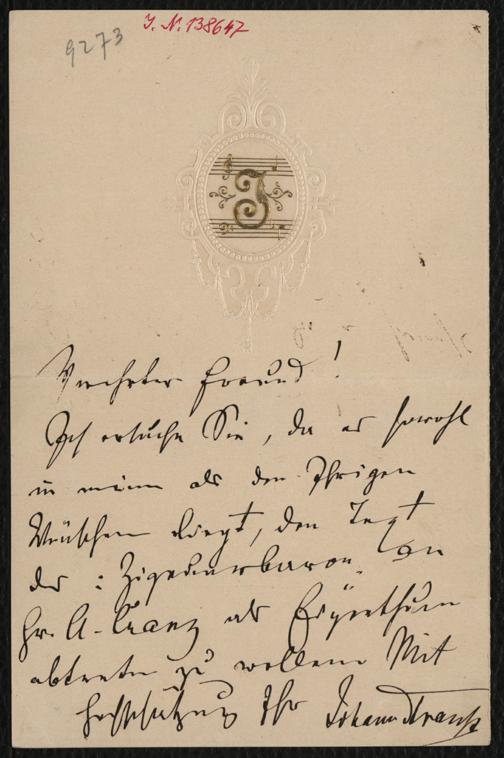 9273
I. N. 138647
J
Verehrter Freund!
Ich ersuche Sie, da es sowohl
in meinem als den Ihrigen
Wünschen liegt, den Text
des: Zigeunerbaron an
Hr. A. Cranz als Eigenthum
abtreten zu wollen. Mit
Hochschätzung Ihr Johann Strauss